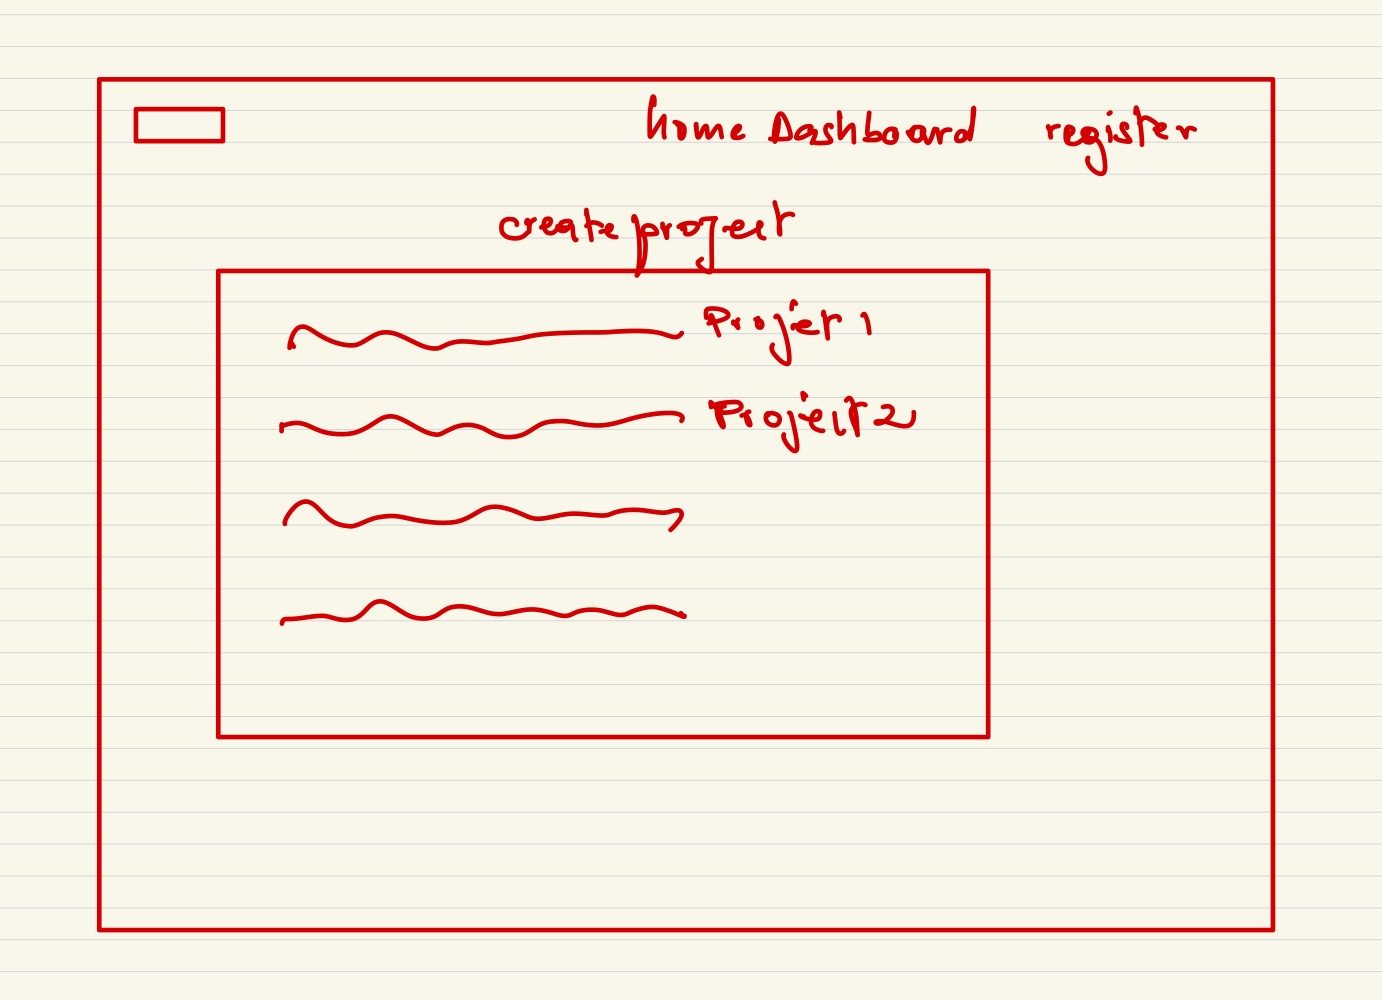 home Dashboard register
create project
Projet 1
Projeit 2